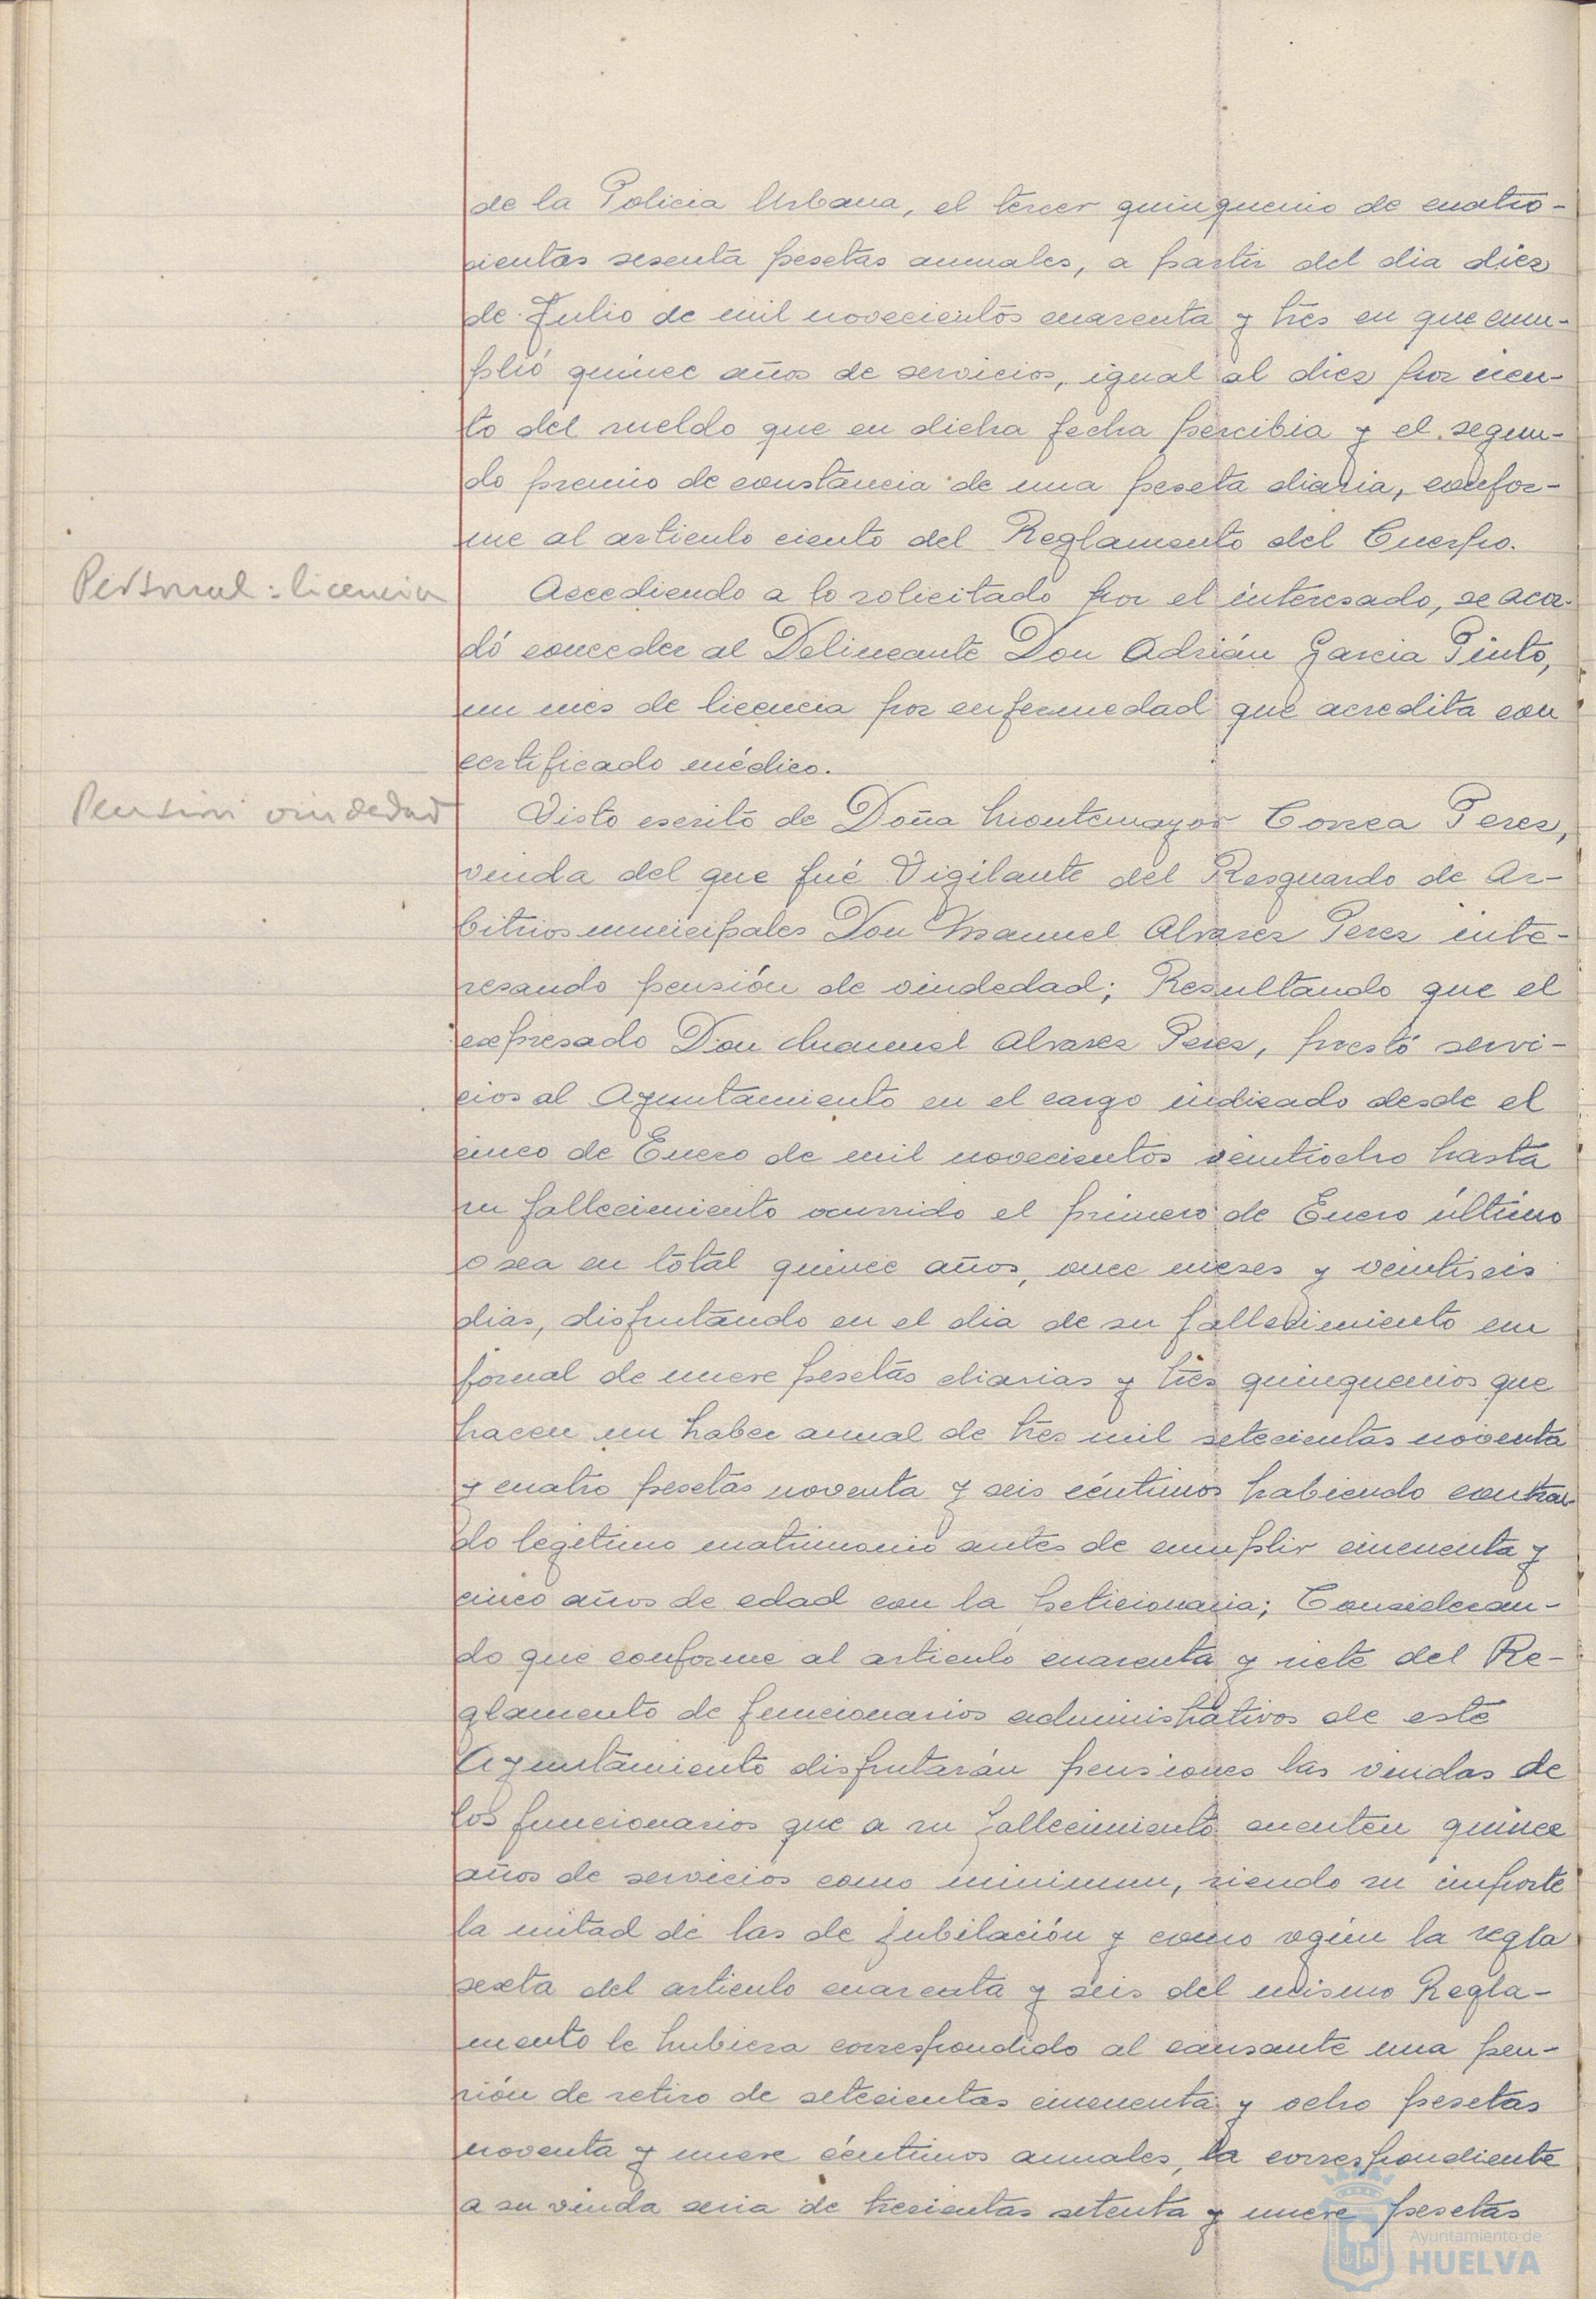 de la Policia Urbana, el tercer quinquenio de cuatro-
cientas sesenta pesetas anuales, a partir del dia diez
de Julio de mil novecientos cuarenta y tres en que cum-
plió quince años de servicios, igual al diez por cien-
to del sueldo que en dicha fecha percibia y el segun-
do premio de constancia de una peseta diaria, confor-
me al articulo ciento del Reglamento del Cuerpo.
Personal: licencia
Accediendo a lo solicitado por el interesado, se acor-
dó conceder al Delineante Don Adrián Garcia Pinto,
un mes de licencia por enfermedad que acredita con
certificado médico.
Pensión viudedad
Visto escrito de Doña Montemayor Correa Perez,
viuda del que fué Vigilante del Resguardo de Ar-
bitrios municipales Don Manuel Alvarez Perez inte-
resando pensión de viudedad; Resultando que el
expresado Don Manuel Alvarez Perez, prestó servi-
cios al Ayuntamiento en el cargo indicado desde el
cinco de Enero de mil novecientos veintiocho hasta
su fallecimiento ocurrido el primero de Enero último
o sea en total quince años, once meses y veintiseis
dias, disfrutando en el dia de su fallecimiento un
jornal de nueve pesetas diarias y tres quinquenios que
hacen un haber anual de tres mil setecientas noventa
y cuatro pesetas noventa y seis céntimos habiendo contrai-
do legitimo matrimonio antes de cumplir cincuenta y
cinco años de edad con la peticionaria; Consideran-
do que conforme al articulo cuarenta y siete del Re-
glamento de funcionarios administrativos de este
Ayuntamiento disfrutarán pensiones las viudas de
los funcionarios que a su fallecimiento cuenten quince
años de servicios como minimun, siendo su importe
la mitad de las de jubilación y como según la regla
sexta del articulo cuarenta y seis del mismo Regla-
mento le hubiera correspondido al causante una pen-
sión de retiro de setecientas cincuenta y ocho pesetas
noventa y nueve céntimos anuales, la correspondiente
a su viuda seria de trecientas setenta y nueve pesetas
Ayuntamiento de
HUELVA